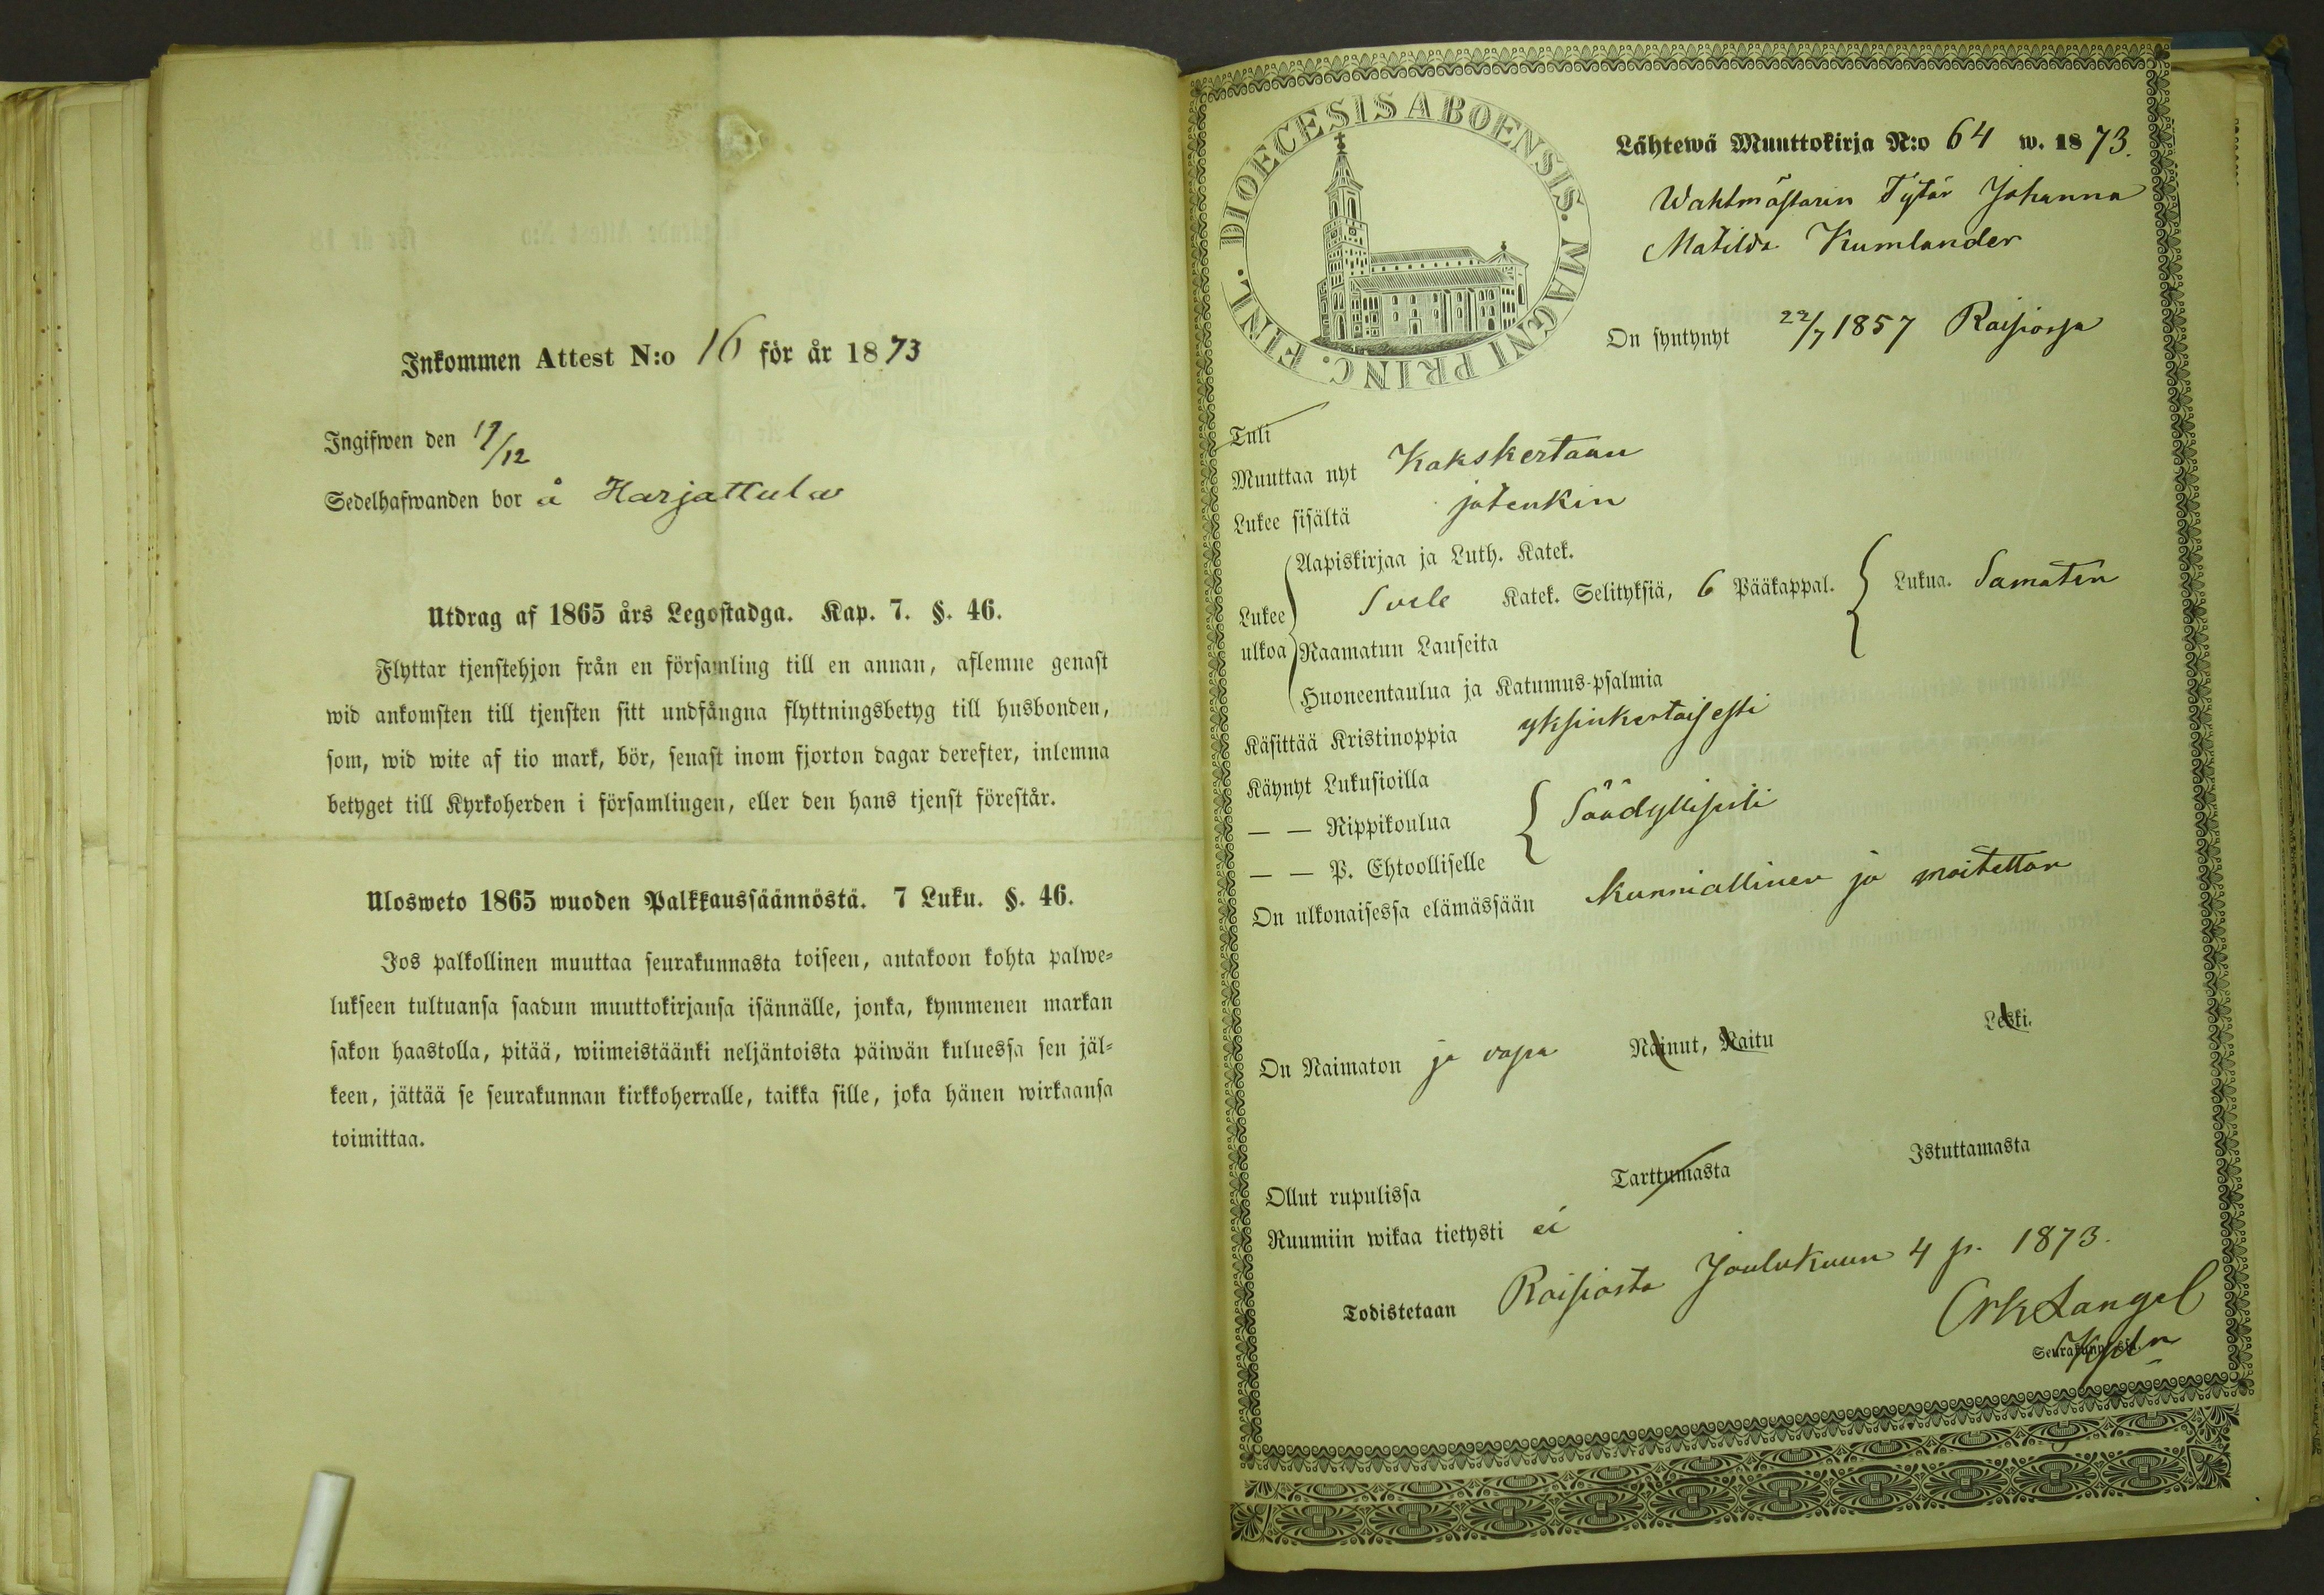 Inkommen Attest N:o 16 för år 1873
Ingifwen den 17/12
Sedelhafwanden bor å Harjattula
Utdrag af 1865 års Legostadga. Kap. 7. §. 46.
Flyttar tjenstehjon från en församling till en annan, aflemne genast
wid ankomsten till tjensten sitt undfångna flyttningsbetyg till husbonden,
som, wid wite af tio mark, bör, senast inom fjorton dagar derefter, inlemna
betyget till Kyrkoherden i församlingen, eller den hans tjenst förestår.
Ulosweto 1865 wuoden Palkkaussäännöstä. 7 Luku. §. 46.
Jos palkollinen muuttaa seurakunnasta toiseen, antakoon kohta palwe-
lukseen tultuansa saadun muuttokirjansa isännälle, jonka, kymmenen markan
sakon haastolla, pitää, wiimeistäänki neljäntoista päiwän kuluessa sen jäl-
keen, jättää se seurakunnan kirkkoherralle, taikka sille, joka hänen wirkaansa
toimittaa.
DIOECESIS ABOENSIS. MAGNI PRINC. FINL.
Lähtewä Muuttokirja N:o 64 w. 1873.
Wahtmästarin Tytär Johanna
Matilda Kumlander
On syntynyt 22/7 1857 Raisiossa
Tuli
Muuttaa nyt Kakskertaan
Lukee sisältä jotenkin
Aapiskirjaa ja Luth. Katek.
Lukee ulkoa Svele Katek. Selityksiä, 6 Pääkappal. Lukua. Samaten
Raamatun Lauseita
Huoneentaulua ja Katumus-psalmia
Käsittää Kristinoppia yksinkertaisesti
Käynyt Lukusioilla
— — Rippikoulua Säädyllisesti
— — P. Ehtoolliselle
On ulkonaisessa elämässään kunniallinen ja moitettan
On Naimaton ja vapa Nainut, Naitu Leski.
Ollut rupulissa Tarttumasta Istuttamasta
Ruumiin wikaa tietysti ei
Todistetaan Raisiosta Joulukuun 4 p. 1873.